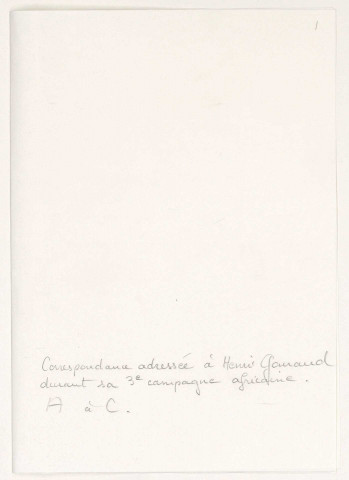 1
Correspondance adressée à Henri Gouraud
durant sa 3e campagne africaine.
A à C.